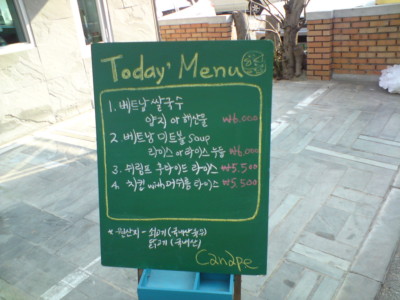 Today' Menu
1. 베트남 쌀국수
양지 or 해산물 ₩6,000
2. 베트남 미트볼 Soup
라이스 or 라이스 누들 ₩6,000
3. 쉬림프 후라이드 라이스 ₩5,500
4. 치킨 with 머쉬룸 라이스 ₩5,500
* 원산지 - 쇠고기 (국내산
닭고기 (국내산)
Canape